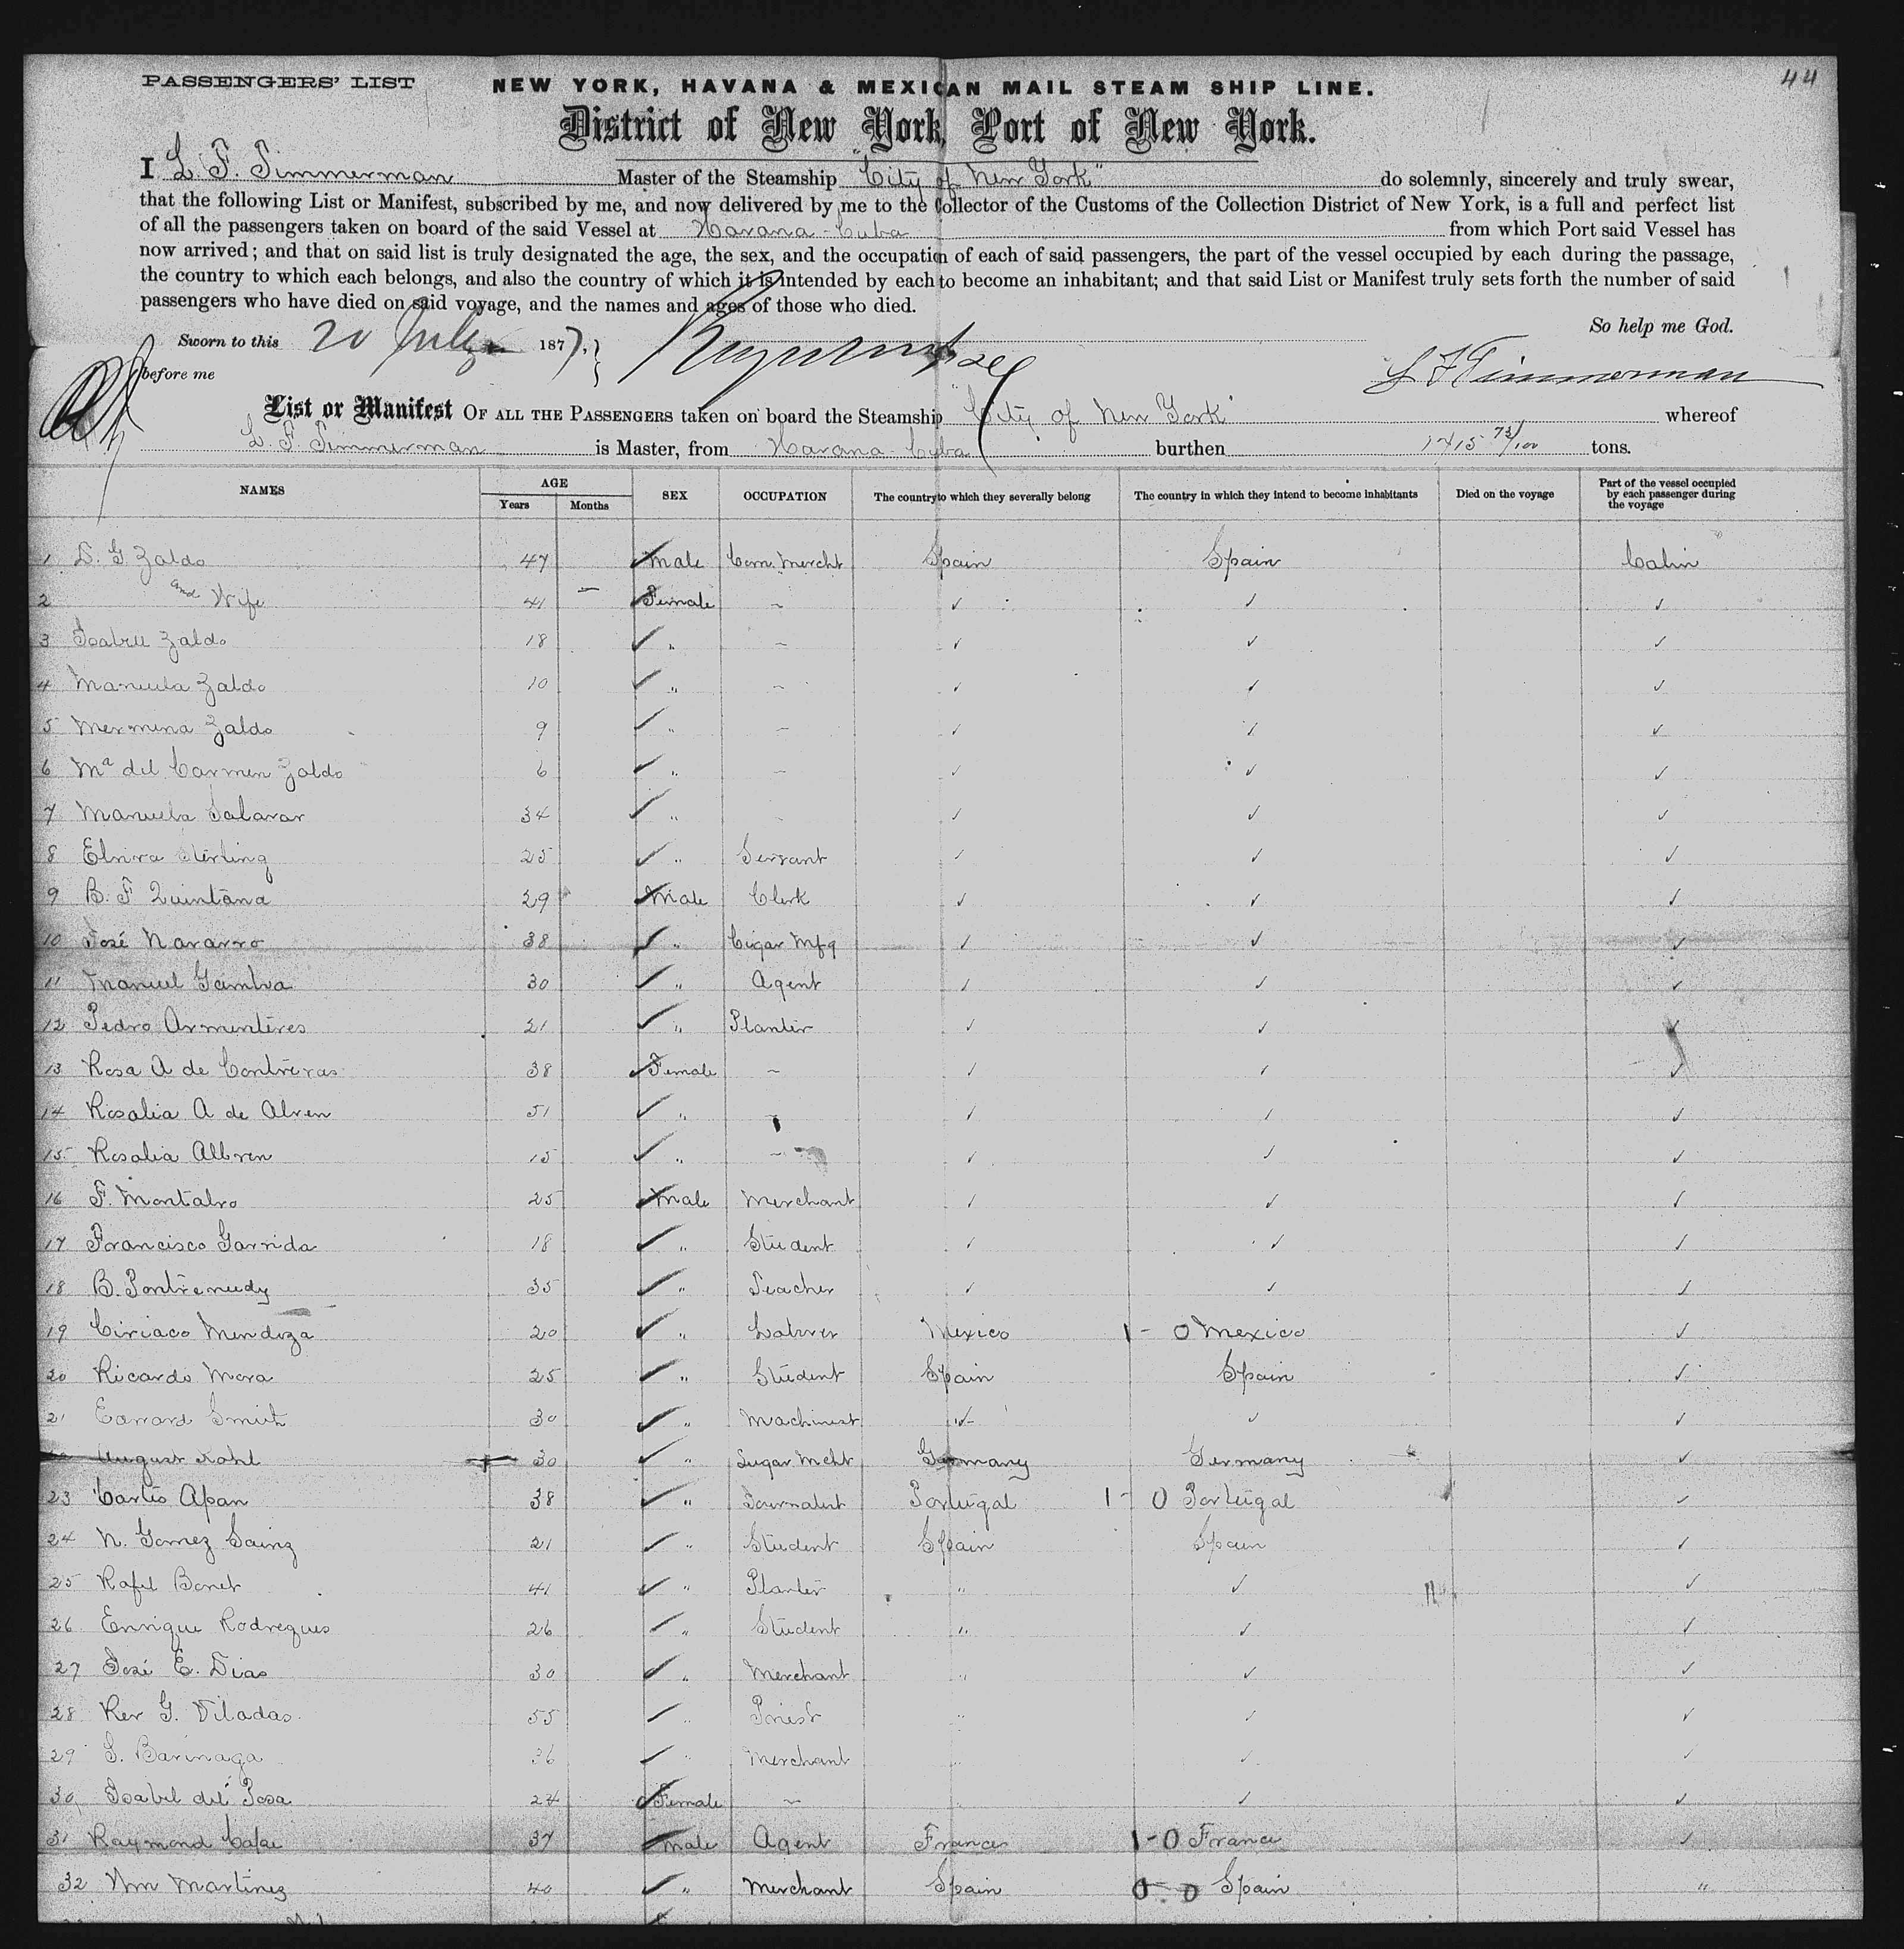 PASSENGERS' LIST NEW YORK, HAVANA & MEXICAN MAIL STEAM SHIP LINE. 44
District of New York, Port of New York.
I L. F. Timmerman Master of the Steamship "City of New York" do solemnly, sincerely and truly swear,
that the following List or Manifest, subscribed by me, and now delivered by me to the Collector of the Customs of the Collection District of New York, is a full and perfect list
of all the passengers taken on board of the said Vessel at Havana - Cuba from which Port said Vessel has
now arrived; and that on said list is truly designated the age, the sex, and the occupation of each of said passengers, the part of the vessel occupied by each during the passage,
the country to which each belongs, and also the country of which it is intended by each to become an inhabitant; and that said List or Manifest truly sets forth the number of said
passengers who have died on said voyage, and the names and ages of those who died.
So help me God.
Sworn to this 20 July 1877,
before me L F Timmerman
List or Manifest OF ALL THE PASSENGERS taken on board the Steamship "City of New York" whereof
L. F. Timmerman is Master, from Havana - Cuba burthen 1715 73/100 tons.
NAMES AGE Years Months SEX OCCUPATION The country to which they severally belong The country in which they intend to become inhabitants Died on the voyage Part of the vessel occupied by each passenger during the voyage
1 D. G. Zaldo 47 Male Com. Mercht Spain Spain Cabin
2 and Wife 41 — Female ~ ✓ ✓ ✓
3 Isabell Zaldo 18 ✓ " ~ ✓ ✓ ✓
4 Manuela Zaldo 10 ✓ " ~ ✓ ✓ ✓
5 Mermina Zaldo 9 ✓ " ~ ✓ ✓ ✓
6 Ma del Carmen Zaldo 6 ✓ " ~ ✓ ✓ ✓
7 Manuela Salavar 34 ✓ " ✓ ✓ ✓
8 Elvira Sterling 25 ✓ " Servant ✓ ✓ ✓
9 B. F Quintana 29 Male Clerk ✓ ✓ ✓
10 José Navarro 38 ✓ " Cigar Mfg ✓ ✓ ✓
11 Manuel Gamba 30 ✓ " Agent ✓ ✓ ✓
12 Pedro Armenteres 21 ✓ " Planter ✓ ✓ ✓
13 Rosa A de Contreras 38 Female ~ ✓ ✓ ✓
14 Rosalia A de Alven 51 ✓ " ~ ✓ ✓ ✓
15 Rosalia Allren 15 ✓ " ~ ✓ ✓ ✓
16 F. Montalvo 25 Male Merchant ✓ ✓ ✓
17 Francisco Garrida 18 ✓ " Student ✓ ✓ ✓
18 B. Pontremudy 35 ✓ " Teacher ✓ ✓ ✓
19 Ciriaco Mendoza 20 ✓ " Laborer Mexico 1 - 0 Mexico ✓
20 Ricardo Mora 25 ✓ " Student Spain Spain ✓
21 Edward Smith 30 ✓ " Machinest ✓ ✓ ✓
August Kohl 30 ✓ " Sugar Mcht Germany Germany ✓
23 Carlos Apan 38 ✓ " Journalist Portugal 1 - 0 Portugal ✓
24 N. Gomez Sainz 21 ✓ " Student Spain Spain ✓
25 Rafel Bonet 41 ✓ " Planter " ✓ ✓
26 Enrique Rodregues 26 ✓ " Student " ✓ ✓
27 José E. Dias 30 ✓ " Merchant " ✓ ✓
28 Rev G. Viladas 55 ✓ " Priest " ✓ ✓
29 S. Barinaga 36 ✓ " Merchant " ✓ ✓
30 Isabel del Posa 24 Female ~ " ✓ ✓
31 Raymond 37 Male Agent France 1 - 0 France ✓
32 Wm Martinez 40 ✓ " Merchant Spain 0 - 0 Spain "